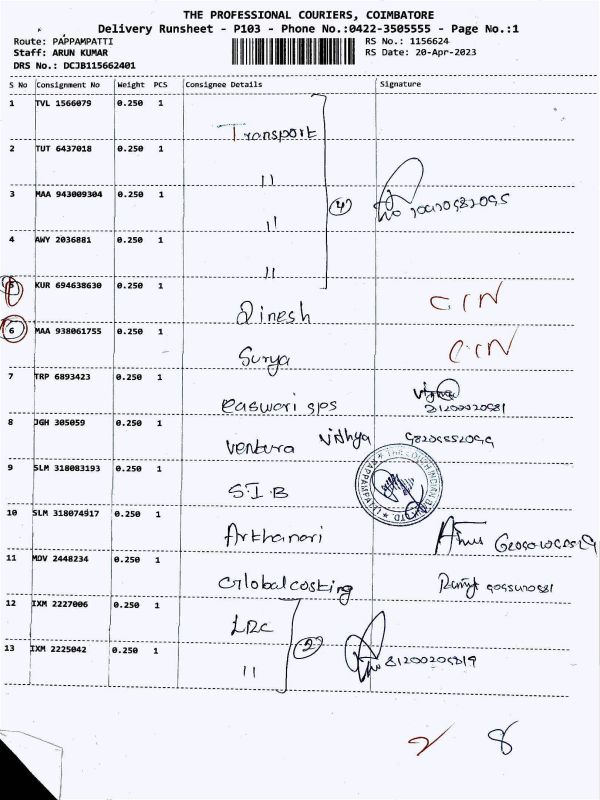 THE PROFESSIONAL COURIERS, COIMBATORE
Delivery Runsheet - P103 - Phone No.:0422-3505555 - Page No.:1
Route: PAPPAMPATTI RS No.: 1156624
Staff: ARUN KUMAR RS Date: 20-Apr-2023
DRS No.: DCJB115662401
S No Consignment No Weight PCS Consignee Details Signature
1 TVL 1566079 0.250 1 Transport
2 TUT 6437018 0.250 1 "
3 MAA 943009304 0.250 1 " 4
4 AWY 2036881 0.250 1 "
5 KUR 694638630 0.250 1 Dinesh CIN
6 MAA 938061755 0.250 1 Surya CIN
7 TRP 6893423 0.250 1 easwari gps
8 JGH 305059 0.250 1 Ventura Vidhya
9 SLM 318083193 0.250 1 S.I.B
THE SOUTH INDIAN BANK LTD. PAPPAMPATTI
10 SLM 318074917 0.250 1 Arthanari
11 MDV 2448234 0.250 1 Global costing
12 IXM 2227006 0.250 1 LRC
13 IXM 2225042 0.250 1 " 2
2 8